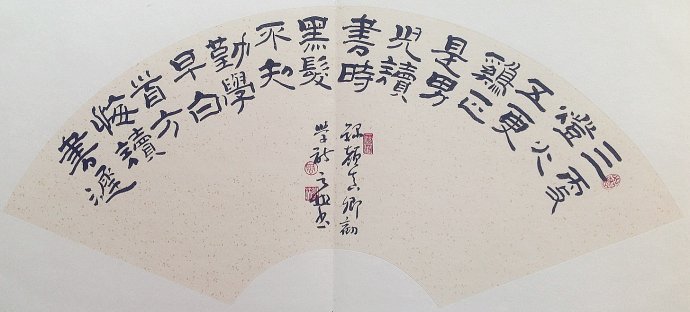 三更
燈火
五更
雞正
是男
兒讀
書時
黑髮
不知
勤學
早白
首方
悔讀
書遲
錄顏真卿勸
学詩書